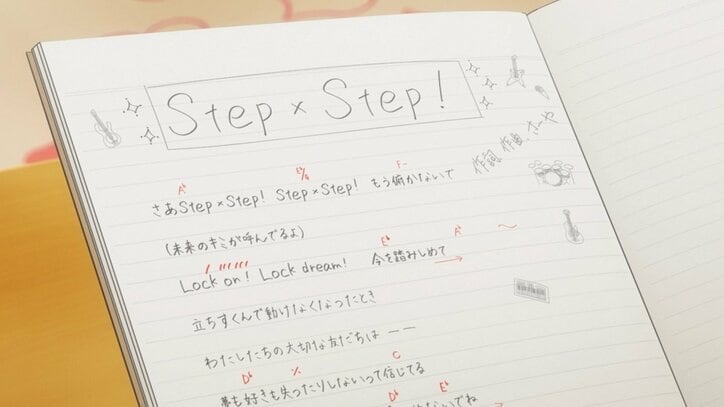 Step × Step!
作詞 作曲 さーや
A♭ E♭/G F-
さあStep×Step! Step×Step! もう俯かないで
(未来のキミが呼んでるよ)
E♭ A♭
Lock on! Lock dream! 今を踏みしめて
立ちすくんで動けなくなったとき
わたしたちの大切な友だちは ――
D♭ C
夢も好きも失ったりしないって信じてる
D♭ E♭
ないでね